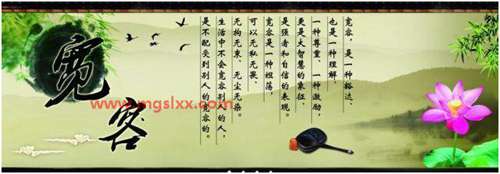 宽容
宽容,是一种豁达、
也是一种理解、
一种尊重、一种激励,
更是大智慧的象征、
是强者和自信的表现。
宽容是一种坦荡,
可以无私无畏、
无拘无束、无尘无染。
生活中不会宽容别人的人,
是不配受到别人的宽容的。
www.mgslxx.com